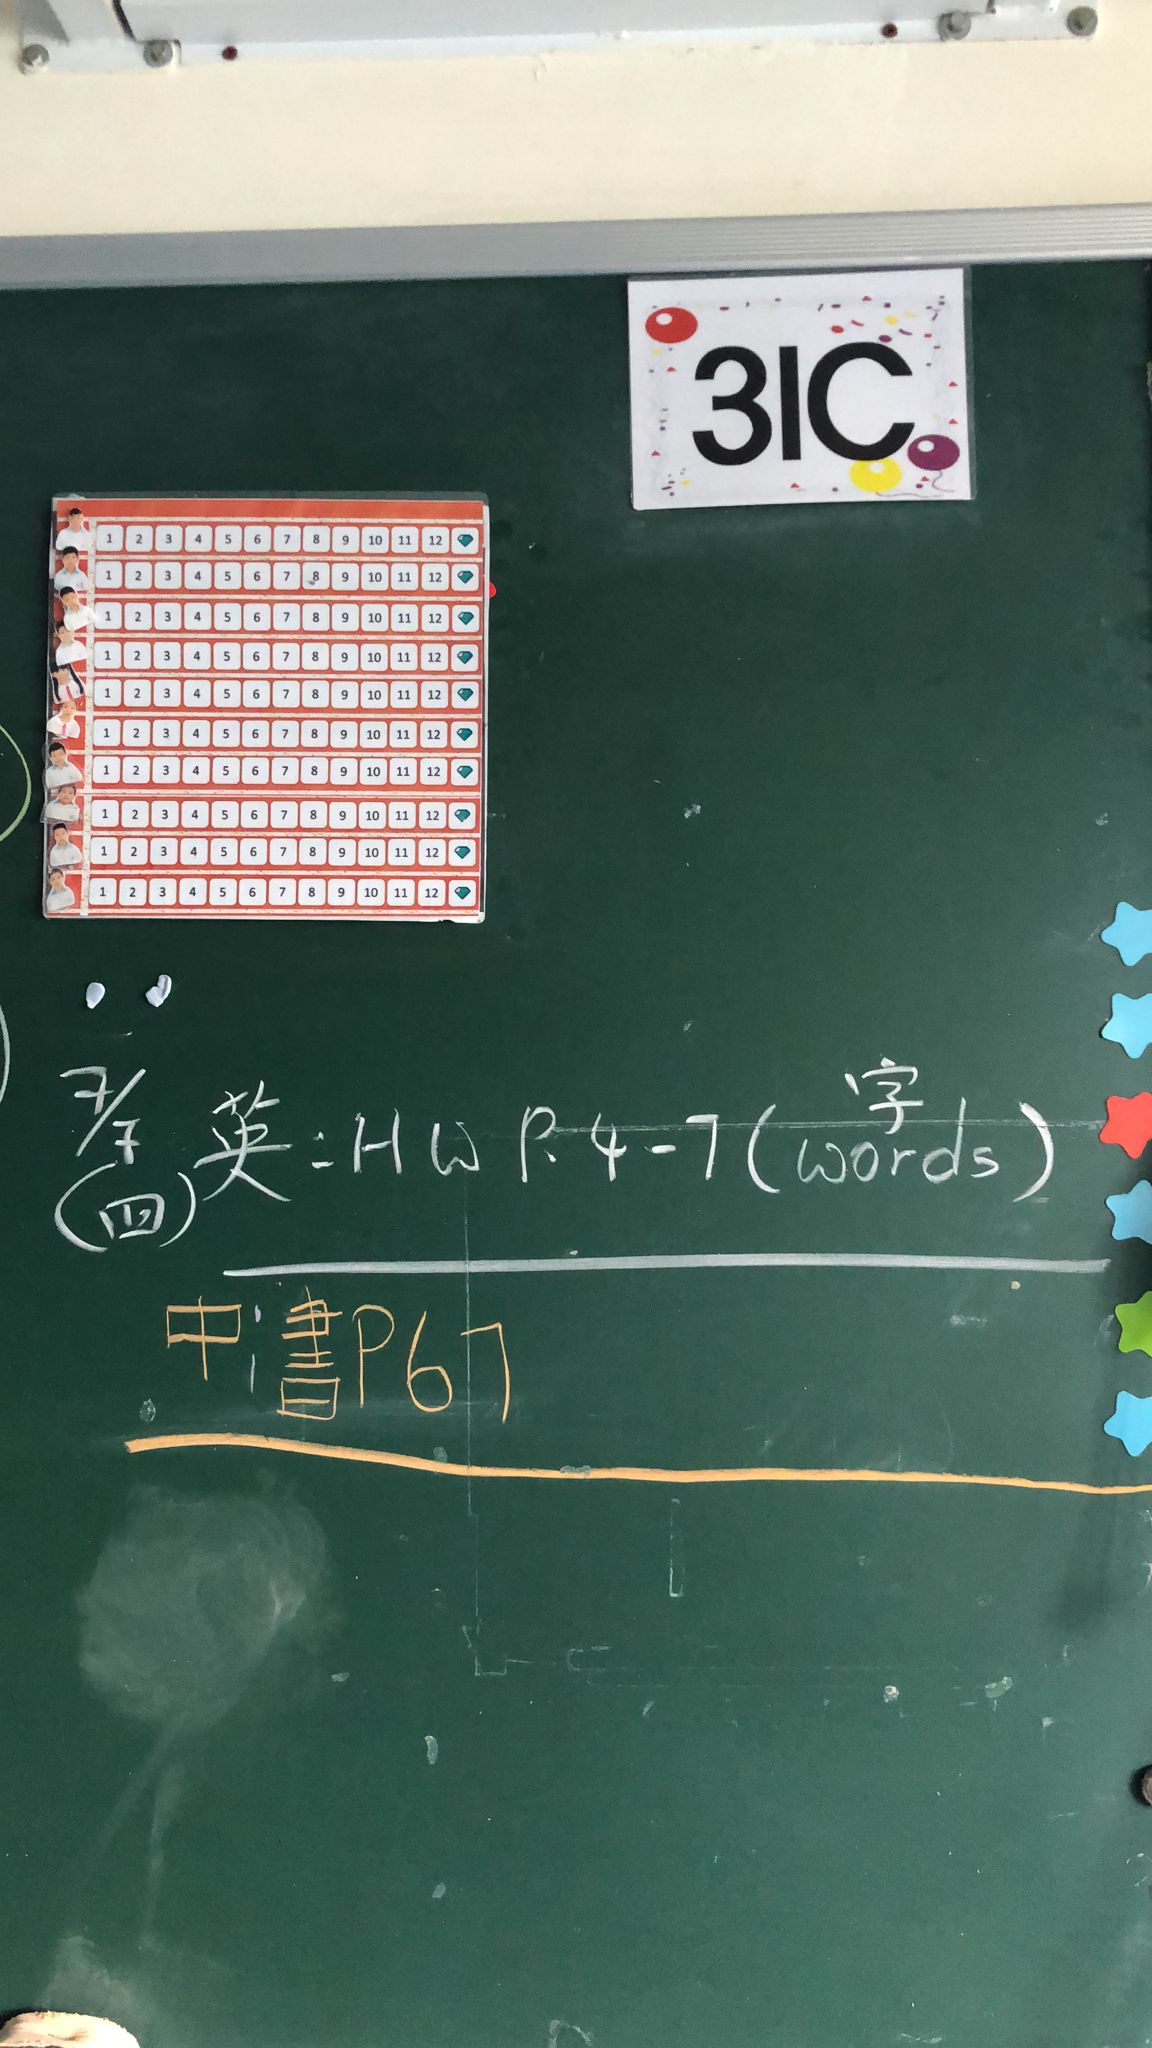 3IC
1 2 3 4 5 6 7 8 9 10 11 12
1 2 3 4 5 6 7 8 9 10 11 12
1 2 3 4 5 6 7 8 9 10 11 12
1 2 3 4 5 6 7 8 9 10 11 12
1 2 3 4 5 6 7 8 9 10 11 12
1 2 3 4 5 6 7 8 9 10 11 12
1 2 3 4 5 6 7 8 9 10 11 12
1 2 3 4 5 6 7 8 9 10 11 12
1 2 3 4 5 6 7 8 9 10 11 12
1 2 3 4 5 6 7 8 9 10 11 12
字
7/7 英:HW P.4-7(words)
(四)
中:書P67